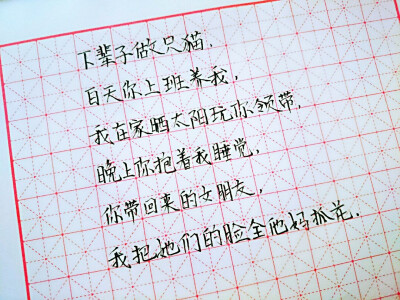 下辈子做只猫，
白天你上班养我，
我在家晒太阳玩你领带，
晚上你抱着我睡觉，
你带回来的女朋友，
我把她们的脸全他妈抓花。